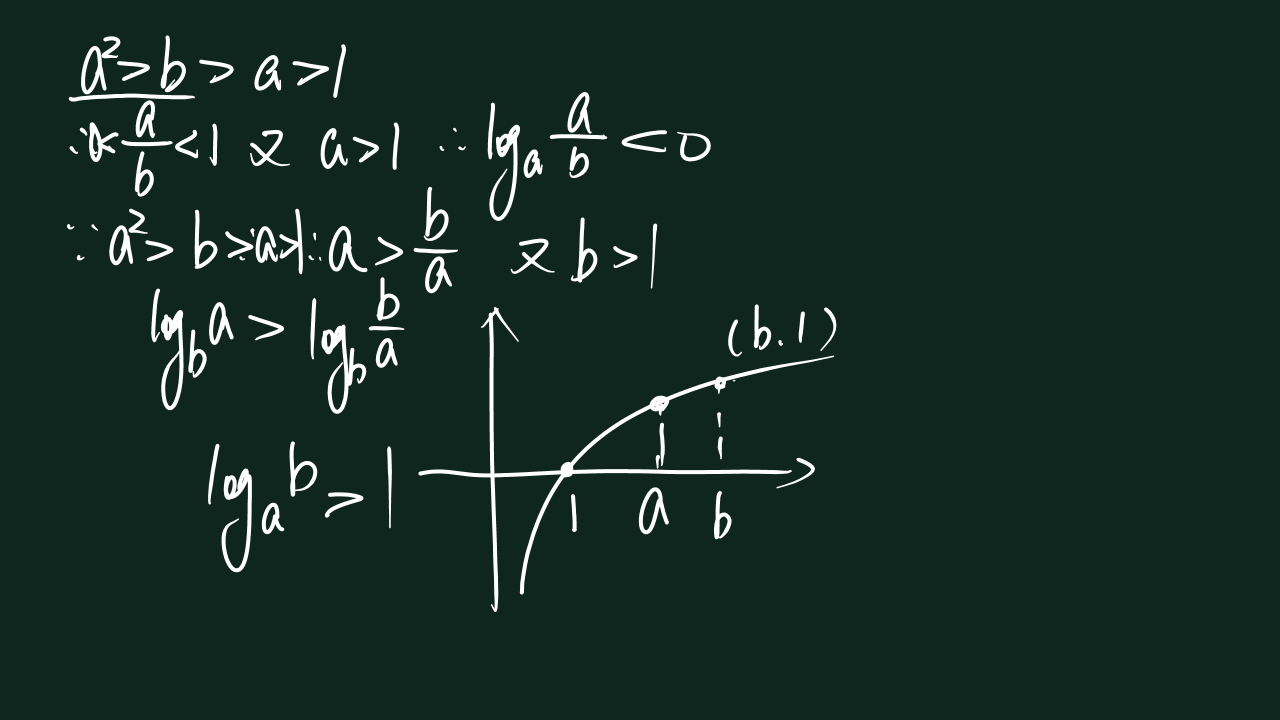 a²>b>a>1
∴0<a/b<1 又 a>1 ∴log_a a/b <0
∵a²>b>a>1∴a>b/a 又 b>1
log_b a > log_b b/a
(b.1)
log_a b >1
1 a b